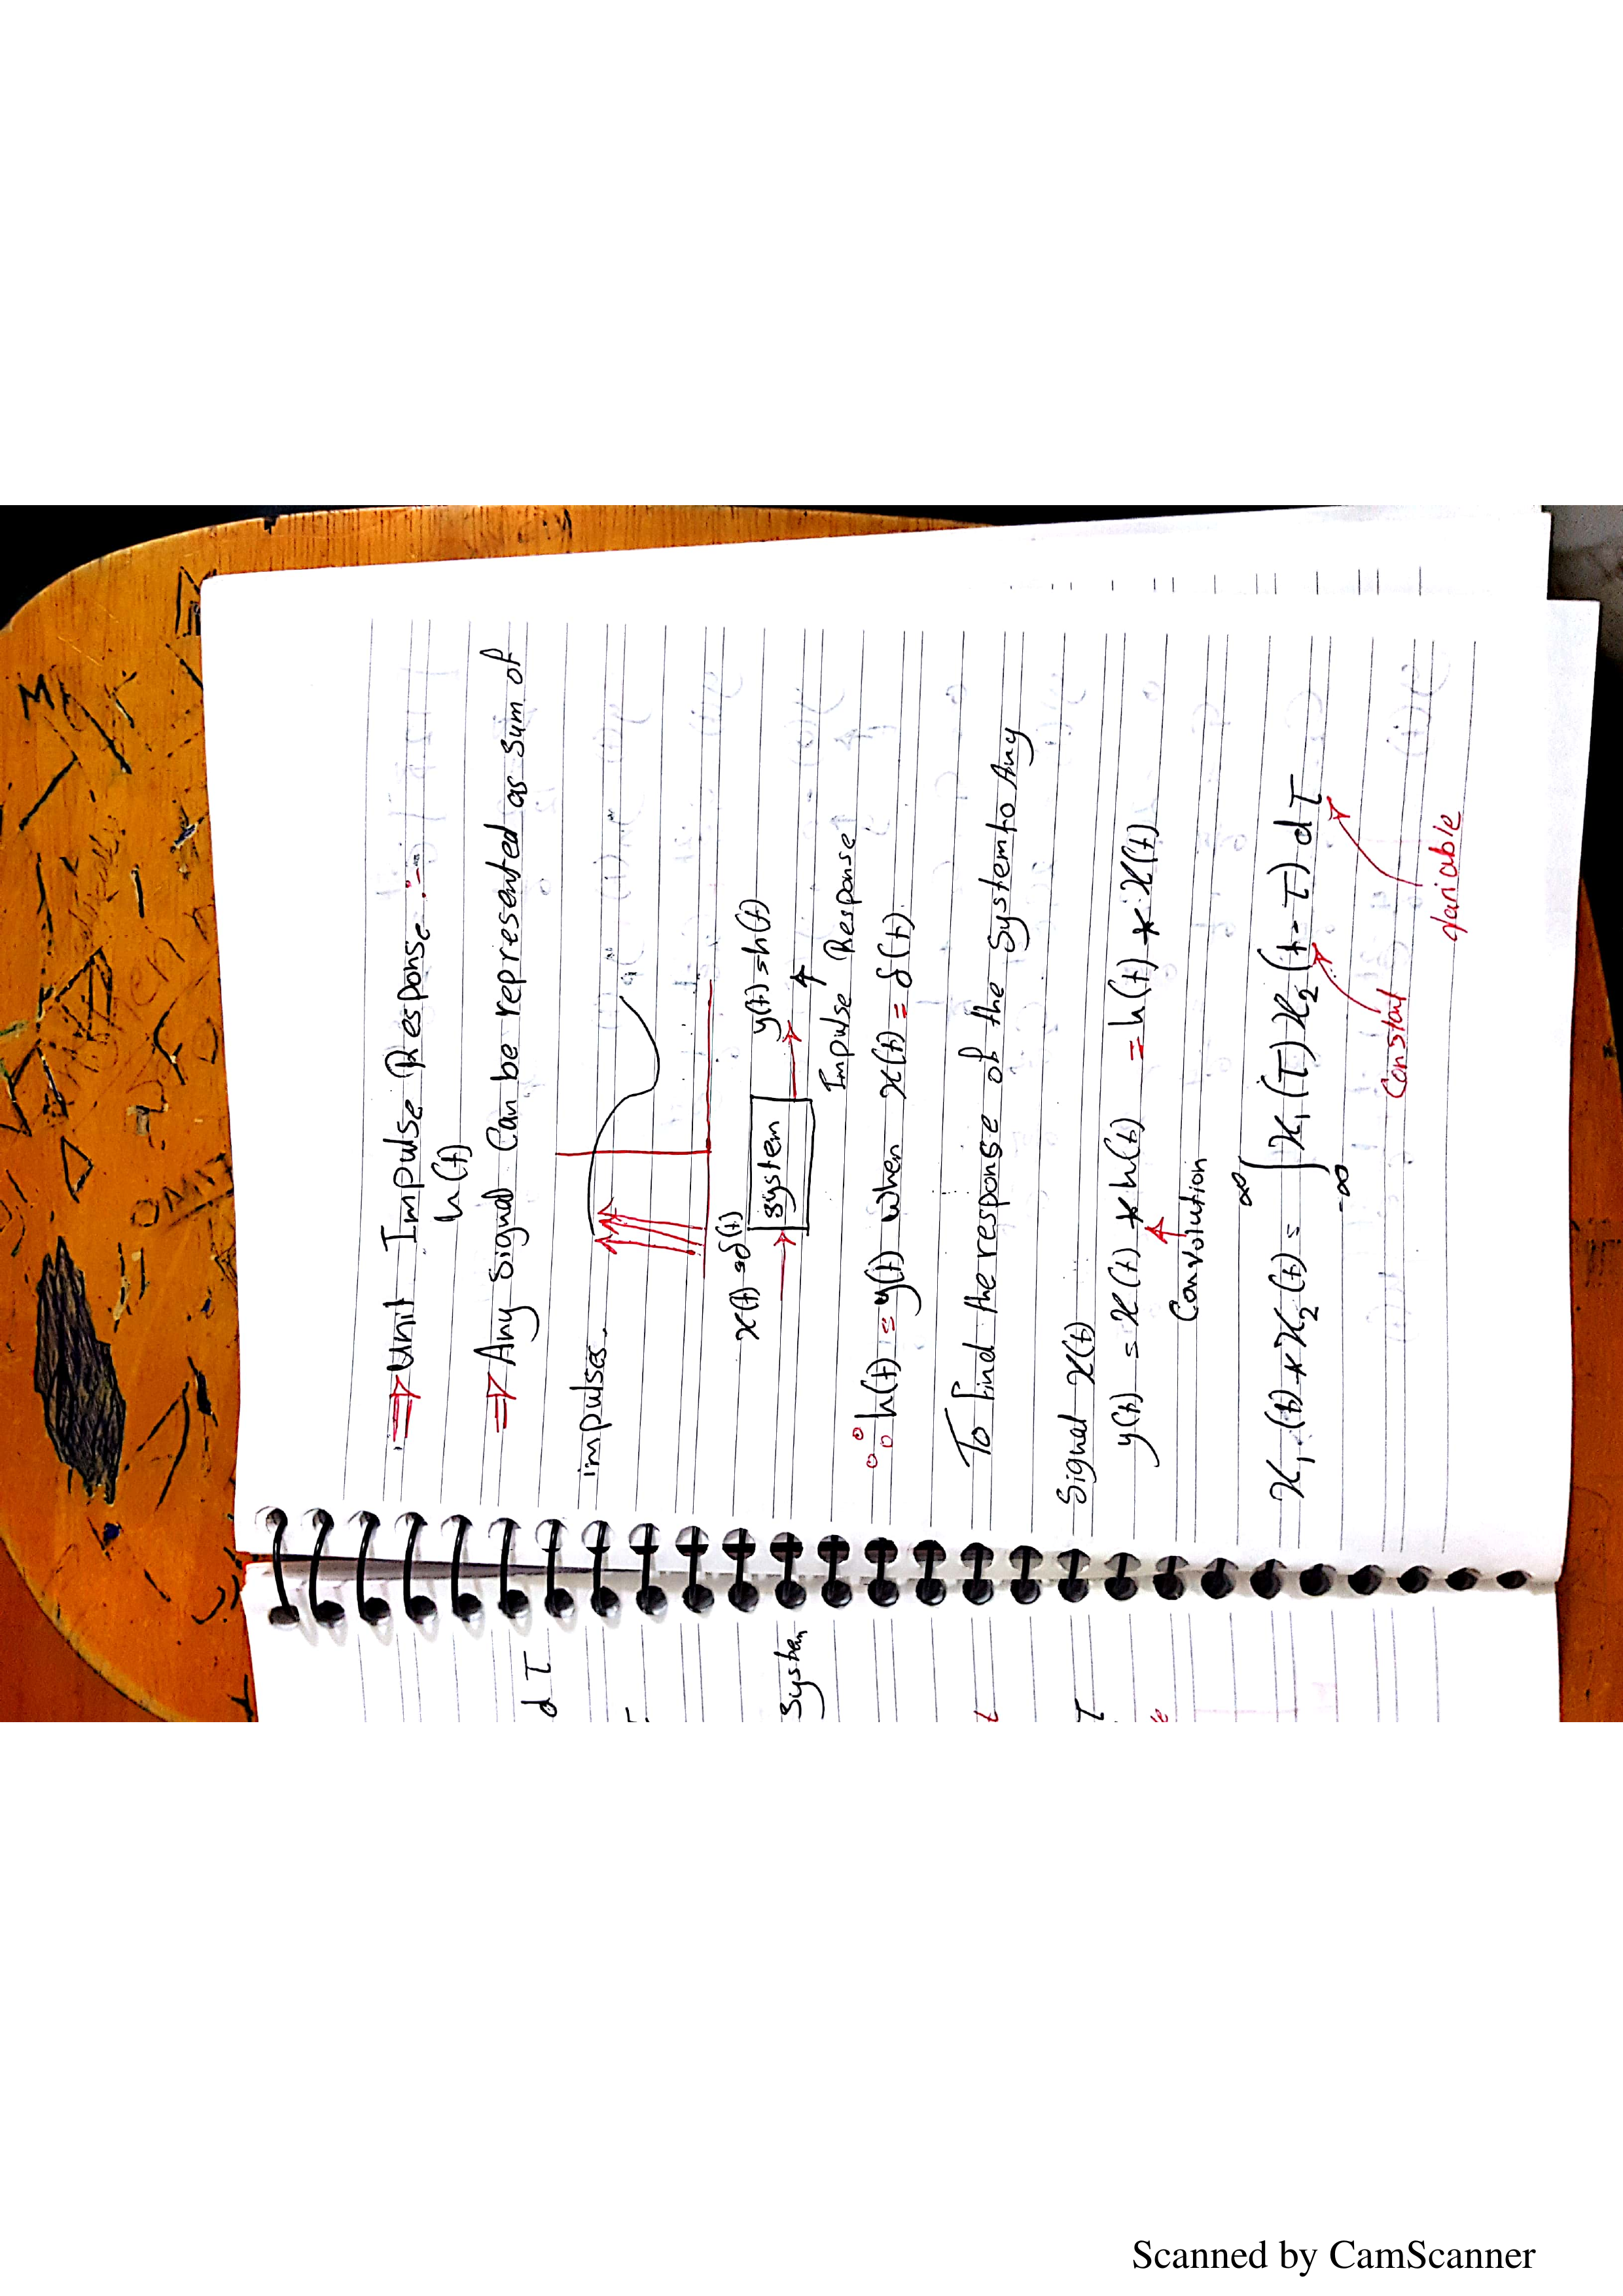 ⇒ Unit Impulse Response :-
h(t)
⇒ Any signal Can be represented as sum of
impulses.
x(t) = δ(t)
system
y(t) = h(t)
Impulse Response
∴ h(t) = y(t) when x(t) = δ(t).
To find the response of the System to Any
Signal x(t)
y(t) = x(t) * h(t) = h(t) * x(t)
Convolution
x₁(t) * x₂(t) = ∫ x₁(τ) x₂(t-τ) dτ
∞
-∞
Constat
variable
dτ
System
t
τ
Scanned by CamScanner